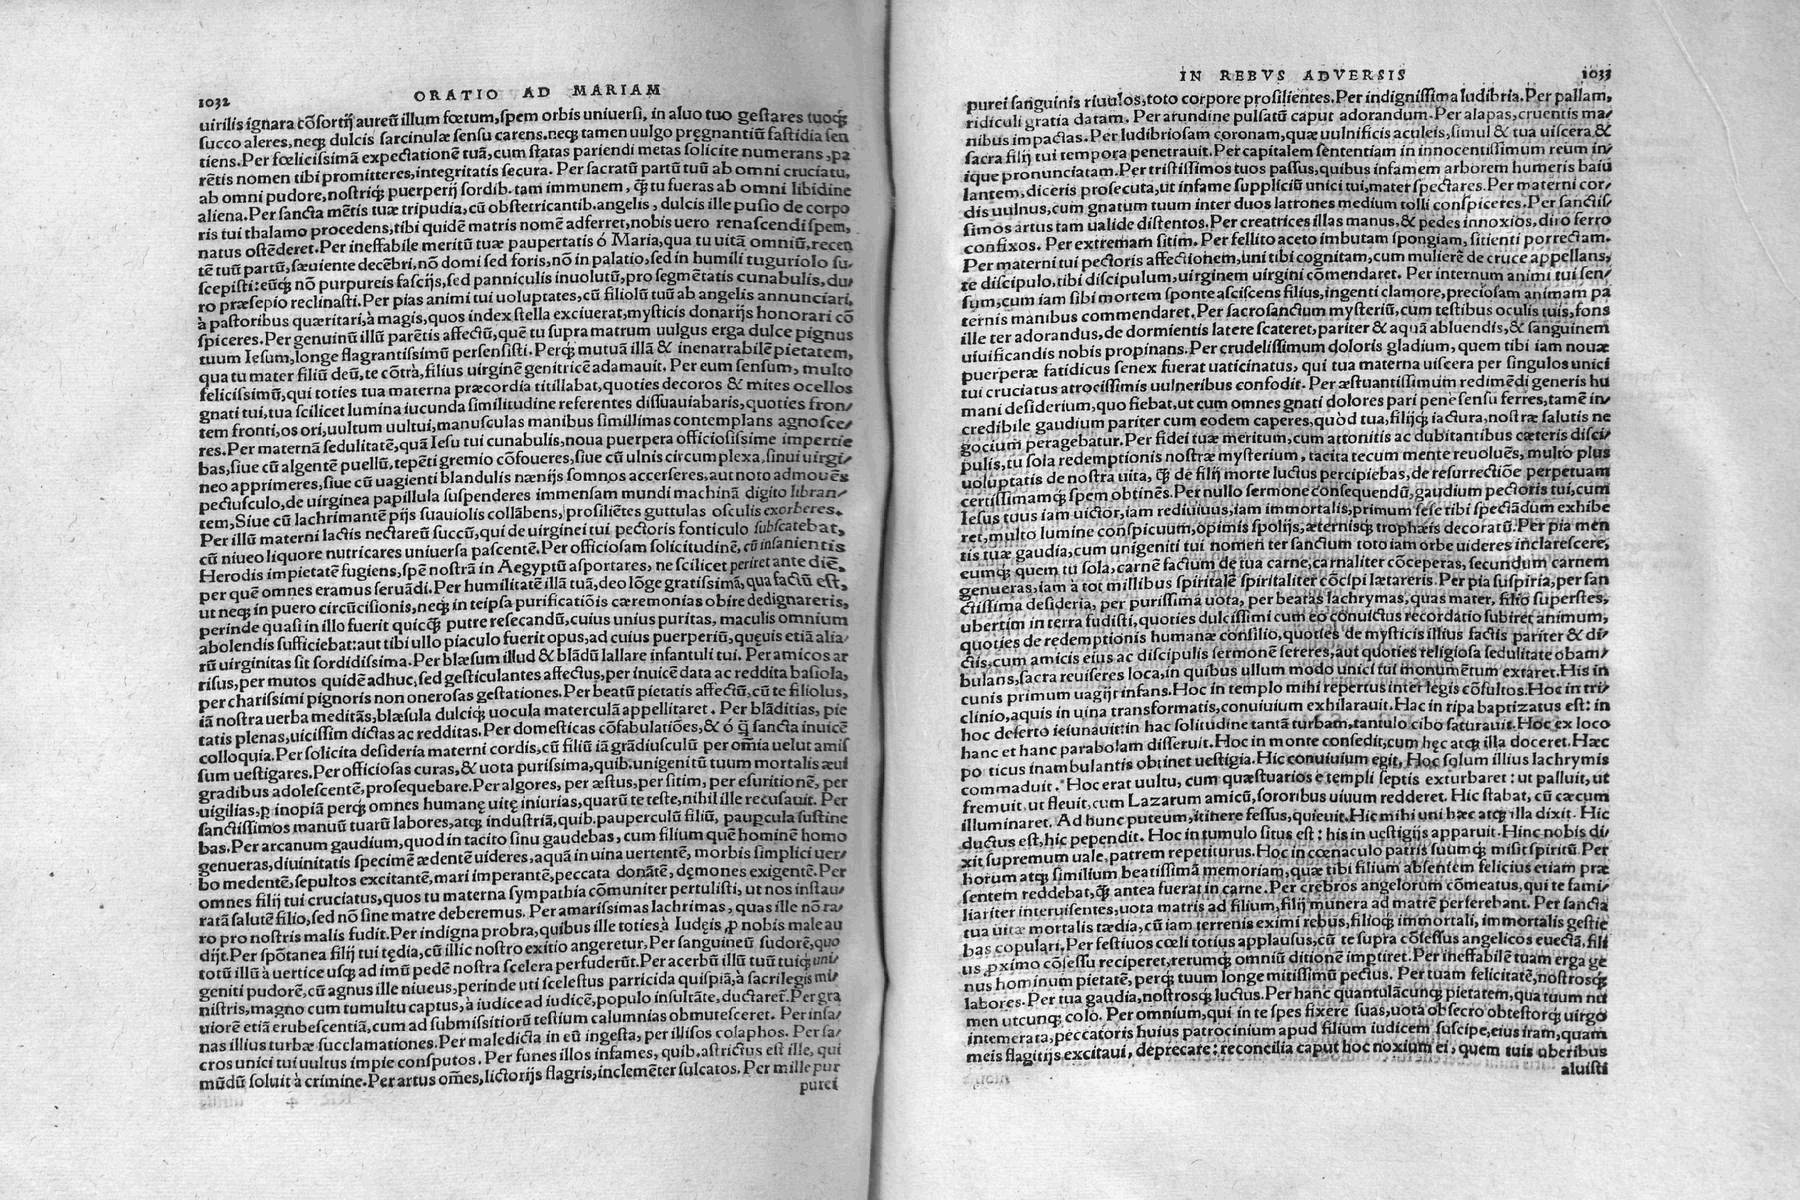 1032 ORATIO AD MARIAM
uirilis ignara cõſortij aureũ illum fœtum, ſpem orbis uniuerſi, in aluo tuo geſtares tuoq́;
ſucco aleres, neq; dulcis ſarcinulæ ſenſu carens. neq; tamen uulgo pręgnantiũ faſtidia ſen
tiens. Per fœliciſsimã expectationẽ tuã, cum ſtatas pariendi metas ſolicite numerans, pa
rẽtis nomen tibi promitteres, integritatis ſecura. Per ſacratũ partũ tuũ ab omni cruciatu,
ab omni pudore, noſtriq́; puerperij ſordib. tam immunem, q̃; tu fueras ab omni libidine
aliena. Per ſancta mẽtis tuæ tripudia, cũ obſtetricantib. angelis, dulcis ille puſio de corpo
ris tui thalamo procedens, tibi quidẽ matris nomẽ adferret, nobis uero renaſcendi ſpem,
natus oſtẽderet. Per ineffabile meritũ tuæ paupertatis ó Maria, qua tu uitã omniũ, recen
tẽ tuũ partũ, ſæuiente decẽbri, nõ domi ſed foris, nõ in palatio, ſed in humili tuguriolo ſu-
ſcepiſti: eũq́; nõ purpureis faſcijs, ſed panniculis inuolutũ, pro ſegmẽtatis cunabulis, du/
ro præſepio reclinaſti. Per pias animi tui uoluptates, cũ filiolũ tuũ ab angelis annunciari,
à paſtoribus quæritari, à magis, quos index ſtella exciuerat, myſticis donarijs honorari cõ
ſpiceres. Per genuinũ illũ parẽtis affectũ, quẽ tu ſupra matrum uulgus erga dulce pignus
tuum Ieſum, longe flagrantiſsimũ perſenſiſti. Perq́; mutuã illã & inenarrabilẽ pietatem,
qua tu mater filiũ deũ, te cõtrà, filius uirginẽ genitricẽ adamauit. Per eum ſenſum, multo
feliciſsimũ, qui toties tua materna præcordia titillabat, quoties decoros & mites ocellos
gnati tui, tua ſcilicet lumina iucunda ſimilitudine referentes diſſuauiabaris, quoties fron/
tem fronti, os ori, uultum uultui, manuſculas manibus ſimillimas contemplans agnoſce/
res. Per maternã ſedulitatẽ, quã Ieſu tui cunabulis, noua puerpera officioſiſsime impertie
bas, ſiue cũ algentẽ puellũ, tepẽti gremio cõfoueres, ſiue cũ ulnis circumplexa, ſinui uirgi/
neo apprimeres, ſiue cũ uagienti blandulis nænijs ſomnos accerſeres, aut noto admouẽs
pectuſculo, de uirginea papillula ſuſpenderes immenſam mundi machinã digito libran/
tem, Siue cũ lachrimantẽ pijs ſuauiolis collãbens, proſiliẽtes guttulas oſculis exorberes.
Per illũ materni lactis nectareũ ſuccũ, qui de uirginei tui pectoris fonticulo ſubſcatebat,
cũ niueo liquore nutricares uniuerſa paſcentẽ. Per officioſam ſolicitudinẽ, cũ inſanientis
Herodis impietatẽ fugiens, ſpẽ noſtrã in Aegyptũ aſportares, ne ſcilicet periret ante diẽ,
per quẽ omnes eramus ſeruãdi. Per humilitatẽ illã tuã, deo lõge gratiſsimã, qua factũ eſt,
ut neq; in puero circũciſionis, neq; in teipſa purificatiõis cæremonias obire dedignareris,
perinde quaſi in illo fuerit quicq̃; putre reſecandũ, cuius unius puritas, maculis omnium
abolendis ſufficiebat: aut tibi ullo piaculo fuerit opus, ad cuius puerperiũ, quęuis etiã alia/
rũ uirginitas ſit ſordidiſsima. Per blæſum illud & blãdũ lallare infantuli tui. Per amicos ar
riſus, per mutos quidẽ adhuc, ſed geſticulantes affectus, per inuicẽ data ac reddita baſiola,
per chariſsimi pignoris non oneroſas geſtationes. Per beatũ pietatis affectũ, cũ te filiolus,
iã noſtra uerba meditãs, blæſula dulciq́; uocula materculã appellitaret. Per blãditias, pie
tatis plenas, uiciſsim dictas ac redditas. Per domeſticas cõfabulatiões, & ó q̃ ſancta inuicẽ
colloquia. Per ſolicita deſideria materni cordis, cũ filiũ iã grãdiuſculũ per om̃ia uelut amiſ
ſum ueſtigares. Per officioſas curas, & uota puriſsima, quib. unigenitũ tuum mortalis æui
gradibus adoleſcentẽ, proſequebare. Per algores, per æſtus, per ſitim, per eſuritionẽ, per
uigilias, ꝑ inopiã perq́; omnes humanę uitę iniurias, quarũ te teſte, nihil ille recuſauit. Per
ſanctiſsimos manuũ tuarũ labores, atq́; induſtriã, quib. pauperculũ filiũ, paupcula ſuſtine
bas. Per arcanum gaudium, quod in tacito ſinu gaudebas, cum filium quẽ hominẽ homo
genueras, diuinitatis ſpecimẽ ædentẽ uideres, aquã in uina uertentẽ, morbis ſimplici uer/
bo medentẽ, ſepultos excitantẽ, mari imperantẽ, peccata donãtẽ, dęmones exigentẽ. Per
omnes filij tui cruciatus, quos tu materna ſympathia cõmuniter pertuliſti, ut nos inſtau/
ratã ſalutẽ filio, ſed nõ ſine matre deberemus. Per amariſsimas lachrimas, quas ille nõ ra/
ro pro noſtris malis fudit. Per indigna probra, quibus ille toties à Iudęis ꝓ nobis male au
dijt. Per ſpõtanea filij tui tędia, cũ illic noſtro exitio angeretur, Per ſanguineũ ſudorẽ, quo
totũ illũ à uertice uſq; ad imũ pedẽ noſtra ſcelera perfuderũt. Per acerbũ illũ tuũ tuiq́; uni/
geniti pudorẽ, cũ agnus ille niueus, perinde uti ſceleſtus parricida quiſpiã, à ſacrilegis mi/
niſtris, magno cum tumultu captus, à iudice ad iudicẽ, populo inſultãte, ductaret̃. Per gra
uiorẽ etiã erubeſcentiã, cum ad ſubmiſsitiorũ teſtium calumnias obmuteſceret. Per inſa/
nas illius turbæ ſucclamationes. Per maledicta in eũ ingeſta, per illiſos colaphos. Per ſa/
cros unici tui uultus impie conſputos. Per funes illos infames, quib. aſtrictus eſt ille, qui
mũdũ ſoluit à crimine. Per artus om̃es, lictorijs flagris, inclemẽter ſulcatos. Per mille pur
purei
IN REBVS ADVERSIS 1033
purei ſanguinis riuulos, toto corpore proſilientes. Per indigniſsima ludibria. Per pallam,
ridiculi gratia datam. Per arundine pulſatũ caput adorandum. Per alapas, cruentis ma/
nibus impactas. Per ludibrioſam coronam, quæ uulnificis aculeis, ſimul & tua uiſcera, &
ſacra filij tui tempora penetrauit. Per capitalem ſententiam in innocentiſsimum reum in/
ique pronunciatam. Per triſtiſsimos tuos paſſus, quibus infamem arborem humeris baiu
lantem, diceris proſecuta, ut infame ſuppliciũ unici tui, mater ſpectares. Per materni cor/
dis uulnus, cum gnatum tuum inter duos latrones medium tolli conſpiceres. Per ſanctiſ/
ſimos artus tam ualide diſtentos. Per creatrices illas manus, & pedes innoxios, diro ferro
confixos. Per extremam ſitim. Per fellito aceto imbutam ſpongiam, ſitienti porrectam.
Per materni tui pectoris affectionem, uni tibi cognitam, cum mulierẽ de cruce appellans,
te diſcipulo, tibi diſcipulum, uirginem uirgini cõmendaret. Per internum animi tui ſen/
ſum, cum iam ſibi mortem ſponte aſciſcens filius, ingenti clamore, precioſam animam pa
ternis manibus commendaret. Per ſacroſanctum myſteriũ, cum teſtibus oculis tuis, fons
ille ter adorandus, de dormientis latere ſcateret, pariter & aquã abluendis, & ſanguinem
uiuificandis nobis propinans. Per crudeliſsimum doloris gladium, quem tibi iam nouæ
puerperæ fatidicus ſenex fuerat uaticinatus, qui tua materna uiſcera per ſingulos unici
tui cruciatus atrociſsimis uulneribus confodit. Per æſtuantiſsimum redimẽdi generis hu
mani deſiderium, quo fiebat, ut cum omnes gnati dolores pari pene ſenſu ferres, tamẽ in/
credibile gaudium pariter cum eodem caperes, quòd tua, filijq́; iactura, noſtræ ſalutis ne
gocium peragebatur. Per fidei tuæ meritum, cum attonitis ac dubitantibus cæteris diſci/
pulis, tu ſola redemptionis noſtræ myſterium, tacita tecum mente reuoluẽs, multo plus
uoluptatis de noſtra uita, q̃; de filij morte luctus percipiebas, de reſurrectiõe perpetuam
certiſsimamq́; ſpem obtinẽs. Per nullo ſermone conſequendũ, gaudium pectoris tui, cum
Ieſus tuus iam uictor, iam rediuiuus, iam immortalis, primum ſeſe tibi ſpectãdum exhibe
ret, multo lumine conſpicuum, opimis ſpolijs, æterniſq́; trophæis decoratũ. Per pia men
tis tuæ gaudia, cum unigeniti tui nomen ter ſanctum toto iam orbe uideres inclareſcere,
eumq́; quem tu ſola, carnẽ factum de tua carne, carnaliter cõceperas, ſecundum carnem
genueras, iam à tot millibus ſpiritalẽ ſpiritaliter cõcipi lætareris. Per pia ſuſpiria, per ſan
ctiſsima deſideria, per puriſsima uota, per beatas lachrymas, quas mater, filio ſuperſtes,
ubertim in terra fudiſti, quoties dulciſsimi cum eo conuictus recordatio ſubiret animum,
quoties de redemptionis humanæ conſilio, quoties de myſticis illius factis pariter & di/
ctis, cum amicis eius ac diſcipulis ſermonẽ ſereres, aut quoties religioſa ſedulitate obam/
bulans, ſacra reuiſeres loca, in quibus ullum modo unici tui monumẽtum extaret. His in
cunis primum uagijt infans. Hoc in templo mihi repertus inter legis cõſultos. Hoc in tri/
clinio, aquis in uina transformatis, conuiuium exhilarauit. Hac in ripa baptizatus eſt: in
hoc deſerto ieiunauit: in hac ſolitudine tantã turbam, tantulo cibo ſaturauit. Hoc ex loco
hanc et hanc parabolam diſſeruit. Hoc in monte conſedit, cum hęc atq́; illa doceret. Hæc
po ticus inambulantis obtinet ueſtigia. Hic conuiuium egit, Hoc ſolum illius lachrymis
commaduit. Hoc erat uultu, cum quæſtuarios e templi ſeptis exturbaret: ut palluit, ut
fremuit, ut fleuit, cum Lazarum amicũ, ſororibus uiuum redderet. Hic ſtabat, cũ cæcum
illuminaret. Ad hunc puteum, itinere feſſus, quieuit. Hic mihi uni hæc atq́; illa dixit. Hic
ductus eſt, hic pependit. Hoc in tumulo ſitus eſt: his in ueſtigijs apparuit. Hinc nobis di/
xit ſupremum uale, patrem repetiturus. Hoc in cœnaculo patris ſuumq́; miſit ſpiritũ. Per
horum atq́; ſimilium beatiſsimã memoriam, quæ tibi filium abſentem felicius etiam præ
ſentem reddebat, q̃; antea fuerat in carne. Per crebros angelorum cõmeatus, qui te fami/
liariter interuiſentes, uota matris ad filium, filij munera ad matrẽ perferebant. Per ſancta
tua uitæ mortalis tædia, cũ iam terrenis eximi rebus, filioq́; immortali, immortalis geſtie
bas copulari. Per feſtiuos cœli totius applauſus, cũ te ſupra cõſeſſus angelicos euectã, fili
us ꝓximo cõſeſſu reciperet, rerumq́; omniũ ditionẽ imptiret. Per ineffabilẽ tuam erga ge
nus hominum pietatẽ, perq́; tuum longe mitiſsimũ pectus. Per tuam felicitatẽ, noſtroſq́;
labores. Per tua gaudia, noſtroſq́; luctus. Per hanc quantulãcunq́; pietatem, qua tuum nu
men utcunq; colo. Per omnium, qui in te ſpes fixere ſuas, uota obſecro obteſtorq́; uirgo
intemerata, peccatoris huius patrocinium apud filium iudicem ſuſcipe, eius iram, quam
meis flagitijs excitaui, deprecare: reconcilia caput hoc noxium ei, quem tuis uberibus
aluiſti